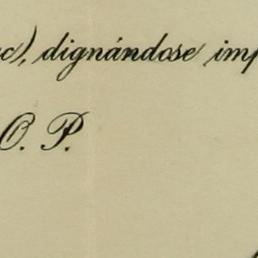 c), dignándose imp
O. P.